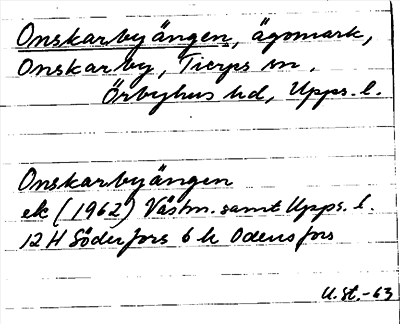 Onskarbyängen, ägomark,
Onskarby, Tierps sn,
Örbyhus hd, Upps. l.
Onskarbyängen
ek (1962) Västm. samt Upps. l.
12 H Söderfors 6 h Odensfors
U.St.-63